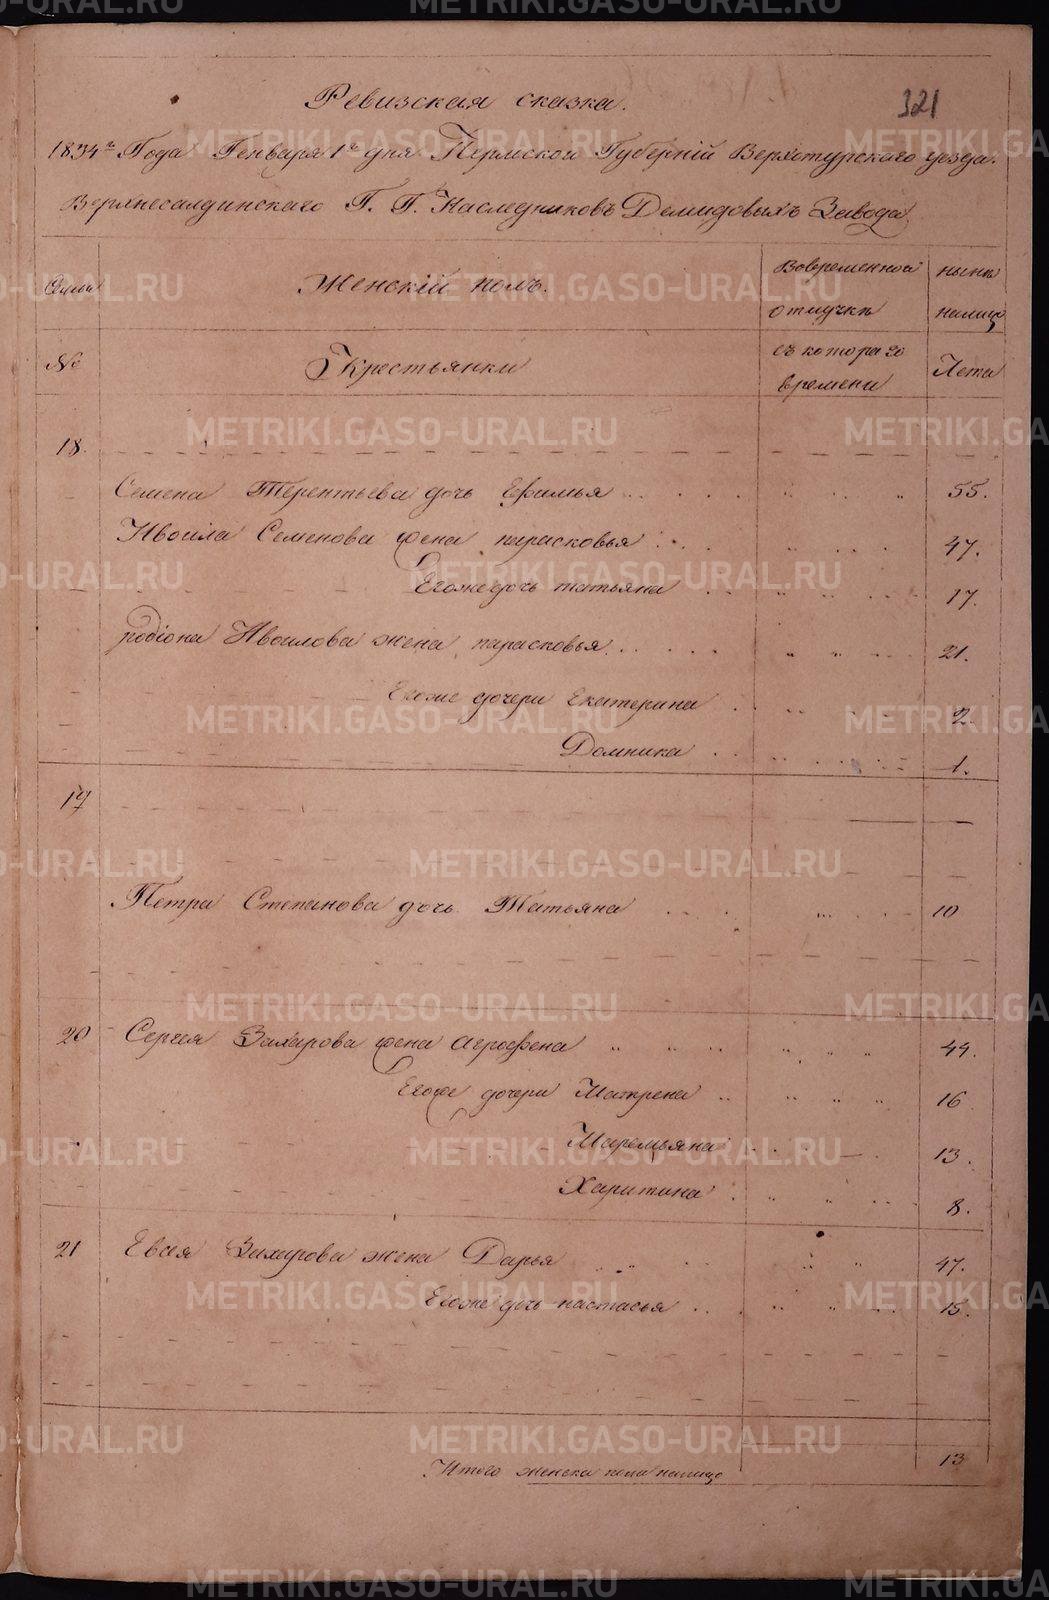 321
Ревизская сказка.
1834го Года Генваря 1го дня Пермской Губернiй Верхотурскаго уезда.
Верхнесалдинскаго Г. Г. Наследниковъ Демидовыхъ Завода
Семьи
Женскiй полъ.
Вовременной отлучкѣ
нынѣ налицо
№
Крестьянки
съ котораго времени
Лета
18.
Семена Терентьева дочь Ефимья 55.
Ивоила Семенова жена парасковья 47.
Егоже дочь татьяна 17.
родiона Ивоилова жена парасковья 21.
Егоже дочери Екатерина 2.
Домника 1.
19
Петра Степанова дочь Татьяна 10
20 Сергея Захарова жена Агрофена 44.
Егоже дочери Матрена 16
Маремьяна 13.
Харитина 8.
21 Евсея Захарова жена Дарья 47.
Егоже дочь настасья 15.
Итого женска пола налицо 13
METRIKI.GASO-URAL.RU